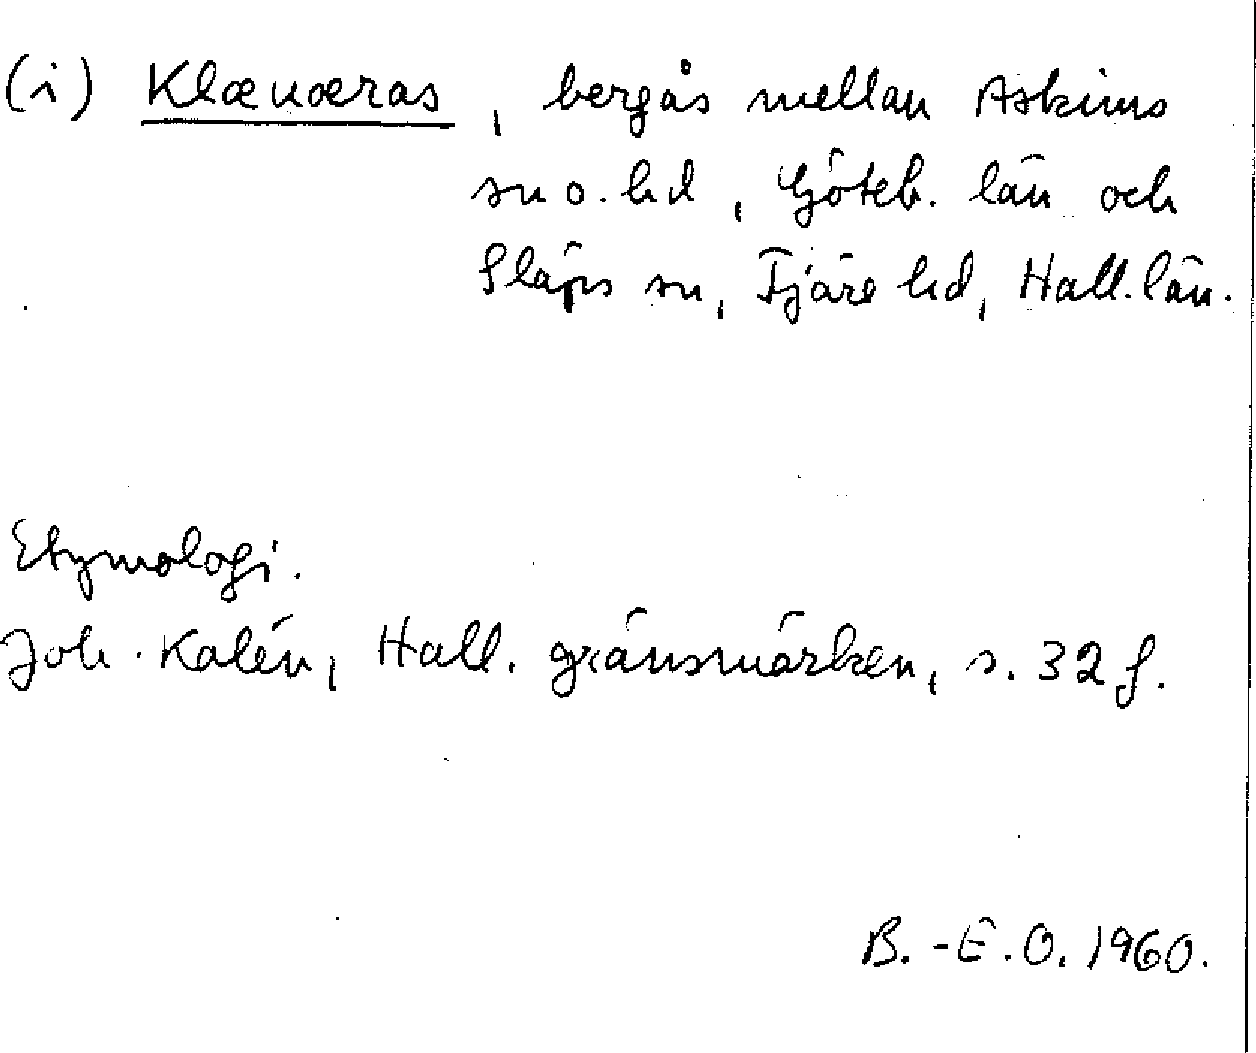 (i) Klæuæras, bergås mellan Askims
sn o. hd, Göteb. län och
Släps sn, Fjäre hd, Hall. län.
Etymologi.
Joh. Kalén, Hall. gränsmärken, s. 32 f.
B.-E.O. 1960.